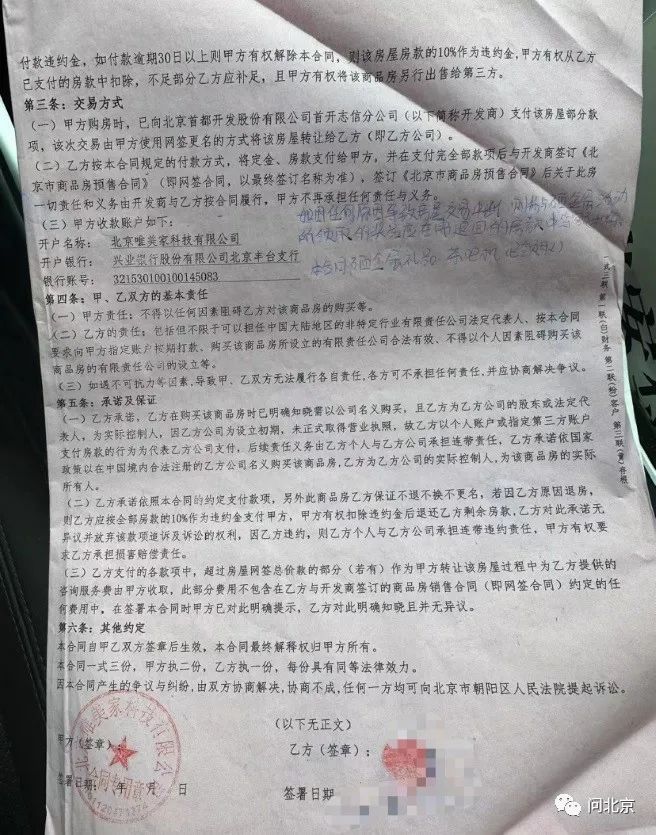 付款违约金，如付款逾期30日以上则甲方有权解除本合同，则该房屋房款的10%作为违约金，甲方有权从乙方
已支付的房款中扣除，不足部分乙方应补足，且甲方有权将该商品房另行出售给第三方。
第三条：交易方式
（一）甲方购房时，已向北京首都开发股份有限公司首开志信分公司（以下简称开发商）支付该房屋部分款
项，该次交易由甲方使用网签更名的方式将该房屋转让给乙方（即乙方公司）。
（二）乙方按本合同规定的付款方式，将定金、房款支付给甲方，并在支付完全部款项后与开发商签订《北
京市商品房预售合同》（即网签合同，以最终签订名称为准），签订《北京市商品房预售合同》后关于此房
一切责任和义务由开发商与乙方按合同履行，甲方不再承担任何责任与义务。
（三）甲方收款账户如下：
开户名称： 北京唯美家科技有限公司
开户银行： 兴业银行股份有限公司北京丰台支行
银行账号： 321530100100145083
第四条：甲、乙双方的基本责任
（一）甲方责任：不得以任何因素阻碍乙方对该商品房的购买等。
（二）乙方的责任：包括但不限于可以担任中国大陆地区的非特定行业有限责任公司法定代表人、按本合同
要求向甲方指定账户按期打款、购买该商品房所设立的有限责任公司合法有效、不得以个人因素阻碍购买该
商品房的有限责任公司的设立等。
（三）如遇不可抗力等因素，导致甲、乙双方无法履行各自责任，各方可不承担任何责任，并应协商解决争议。
第五条：承诺及保证
（一）乙方承诺，乙方在购买该商品房时已明确知晓需以公司名义购买，且乙方为乙方公司的股东或法定代
表人，为实际控制人，因乙方公司为设立初期，未正式取得营业执照，故乙方以个人账户或指定第三方账户
支付房款的行为为代表乙方公司支付，后续责任义务由乙方个人与乙方公司承担连带责任，乙方承诺依国家
政策以在中国境内合法注册的乙方公司名义购买该商品房，乙方为乙方公司的实际控制人，为该商品房的实际
所有人。
（二）乙方承诺依照本合同的约定支付款项，另外此商品房乙方保证不退不换不更名，若因乙方原因退房，
则乙方应按全部房款的10%作为违约金支付甲方，甲方有权扣除违约金后退还乙方剩余房款，乙方对此承诺无
异议并放弃该款项追诉及诉讼的权利，因乙方违约，则乙方个人与乙方公司承担连带违约责任，甲方有权要
求乙方承担损害赔偿责任。
（三）乙方支付的各款项中，超过房屋网签总价款的部分（若有）作为甲方转让该房屋过程中为乙方提供的
咨询服务费由甲方收取，此部分费用不包含在乙方与开发商签订的商品房销售合同（即网签合同）约定的任
何费用中。在签署本合同时甲方已对此明确提示，乙方对此明确知晓且并无异议。
第六条：其他约定
本合同自甲乙双方签章后生效，本合同最终解释权归甲方所有。
本合同一式三份，甲方执二份，乙方执一份，每份具有同等法律效力。
因本合同产生的争议与纠纷，由双方协商解决，协商不成，任何一方均可向北京市朝阳区人民法院提起诉讼。
（以下无正文）
甲方（签章）：
乙方（签章）：
签署日期： 年 月 日
签署日期
一式三联 第一联（白）财务 第二联（粉）客户 第三联（黄）存根
合同专用章
问北京